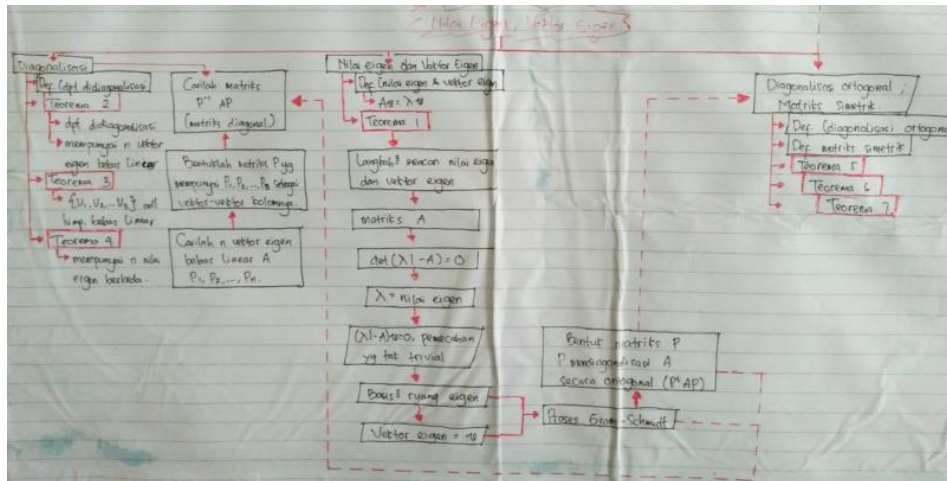 Nilai Eigen, Vektor Eigen
Diagonalisasi
Def. (dpt didiagonalisasi)
Teorema 2
dpt didiagonalisasi
mempunyai n vektor
eigen bebas linear
Teorema 3
himp. bebas linear
Teorema 4
mempunyai n nilai
eigen berbeda.
Carilah matriks
P⁻¹ AP
(matriks diagonal)
Bentuklah matriks P yg
mempunyai P₁, P₂, ..., Pₙ sebagai
vektor-vektor kolomnya.
Carilah n vektor eigen
bebas linear A
P₁, P₂, ..., Pn.
Nilai eigen dan Vektor Eigen
Def. (nilai eigen & vektor eigen
Teorema 1
Langkah² mencari nilai eigen
dan vektor eigen
matriks A
det (λI - A) = 0
λ = nilai eigen
pemecahan
yg tak trivial
Basis² ruang eigen
Vektor eigen =
Bentuk matriks P
P mendiagonalisasi A
secara ortogonal (PᵗAP)
Proses Gram-Schmidt
Diagonalisasi ortogonal ;
Matriks Simetrik
Def. (diagonalisasi) ortogonal
Def matriks simetrik
Teorema 5
Teorema 6
Teorema 7